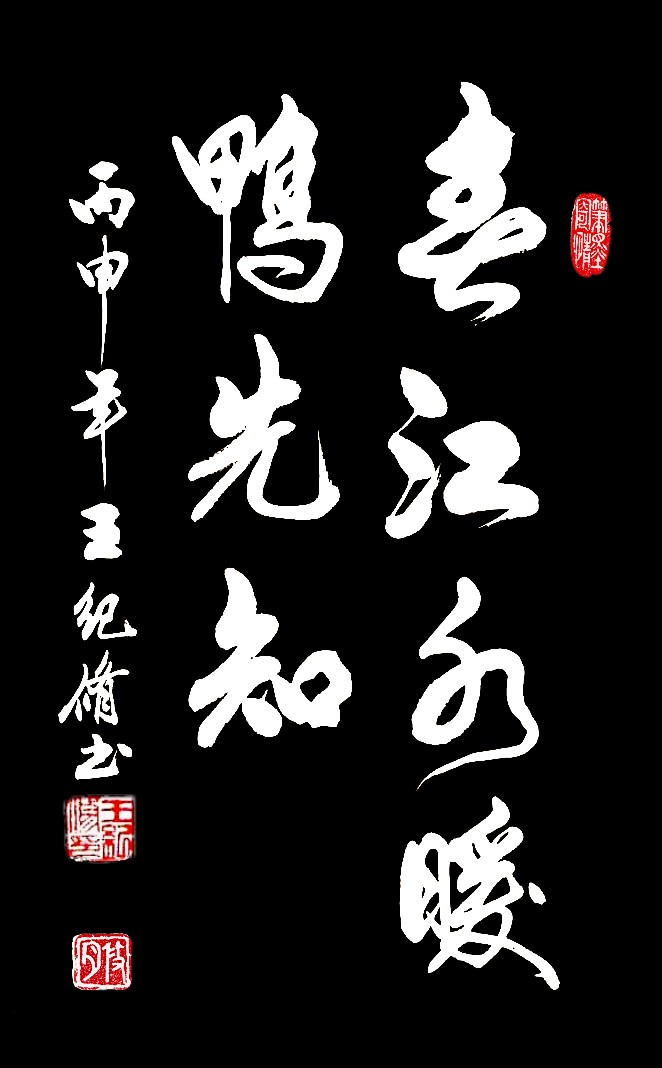 春江水暖
鸭先知
丙申年王纪脩书